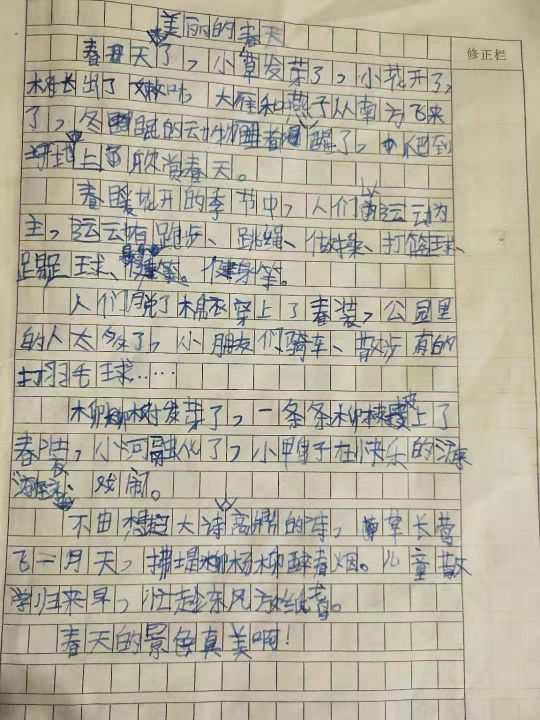 美丽的春天
修正栏
春丑天了，小草发芽了，小花开了，
树长出了嫩叶，大雁和燕子从南方飞来
了，冬眠的动物睡着醒了，把到
上面欣赏春天。
春暖花开的季节中，人们运动为
主，运动有跑步、跳绳、做操、打篮球、
足球、健身等。
人们脱了棉衣穿上了春装，公园里
的人太多了，小朋友们骑车、散步有的
打羽毛球……
柳树发芽了，一条条柳枝披上了
春装，小河融化了，小鸭子在快乐的游来
游去戏闹。
不由想起大诗高鼎的诗，草长莺
飞二月天，拂堤杨柳醉春烟。儿童散
学归来早，忙趁东风放纸鸢。
春天的景色真美啊！